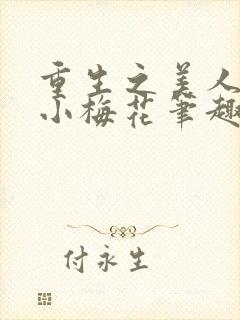 重生之美人
小梅花笔趣
付永生